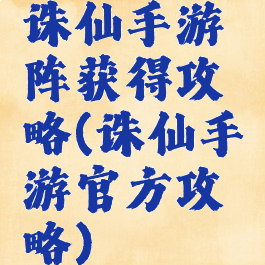 诛仙手游
阵获得攻
略(诛仙手
游官方攻
略)